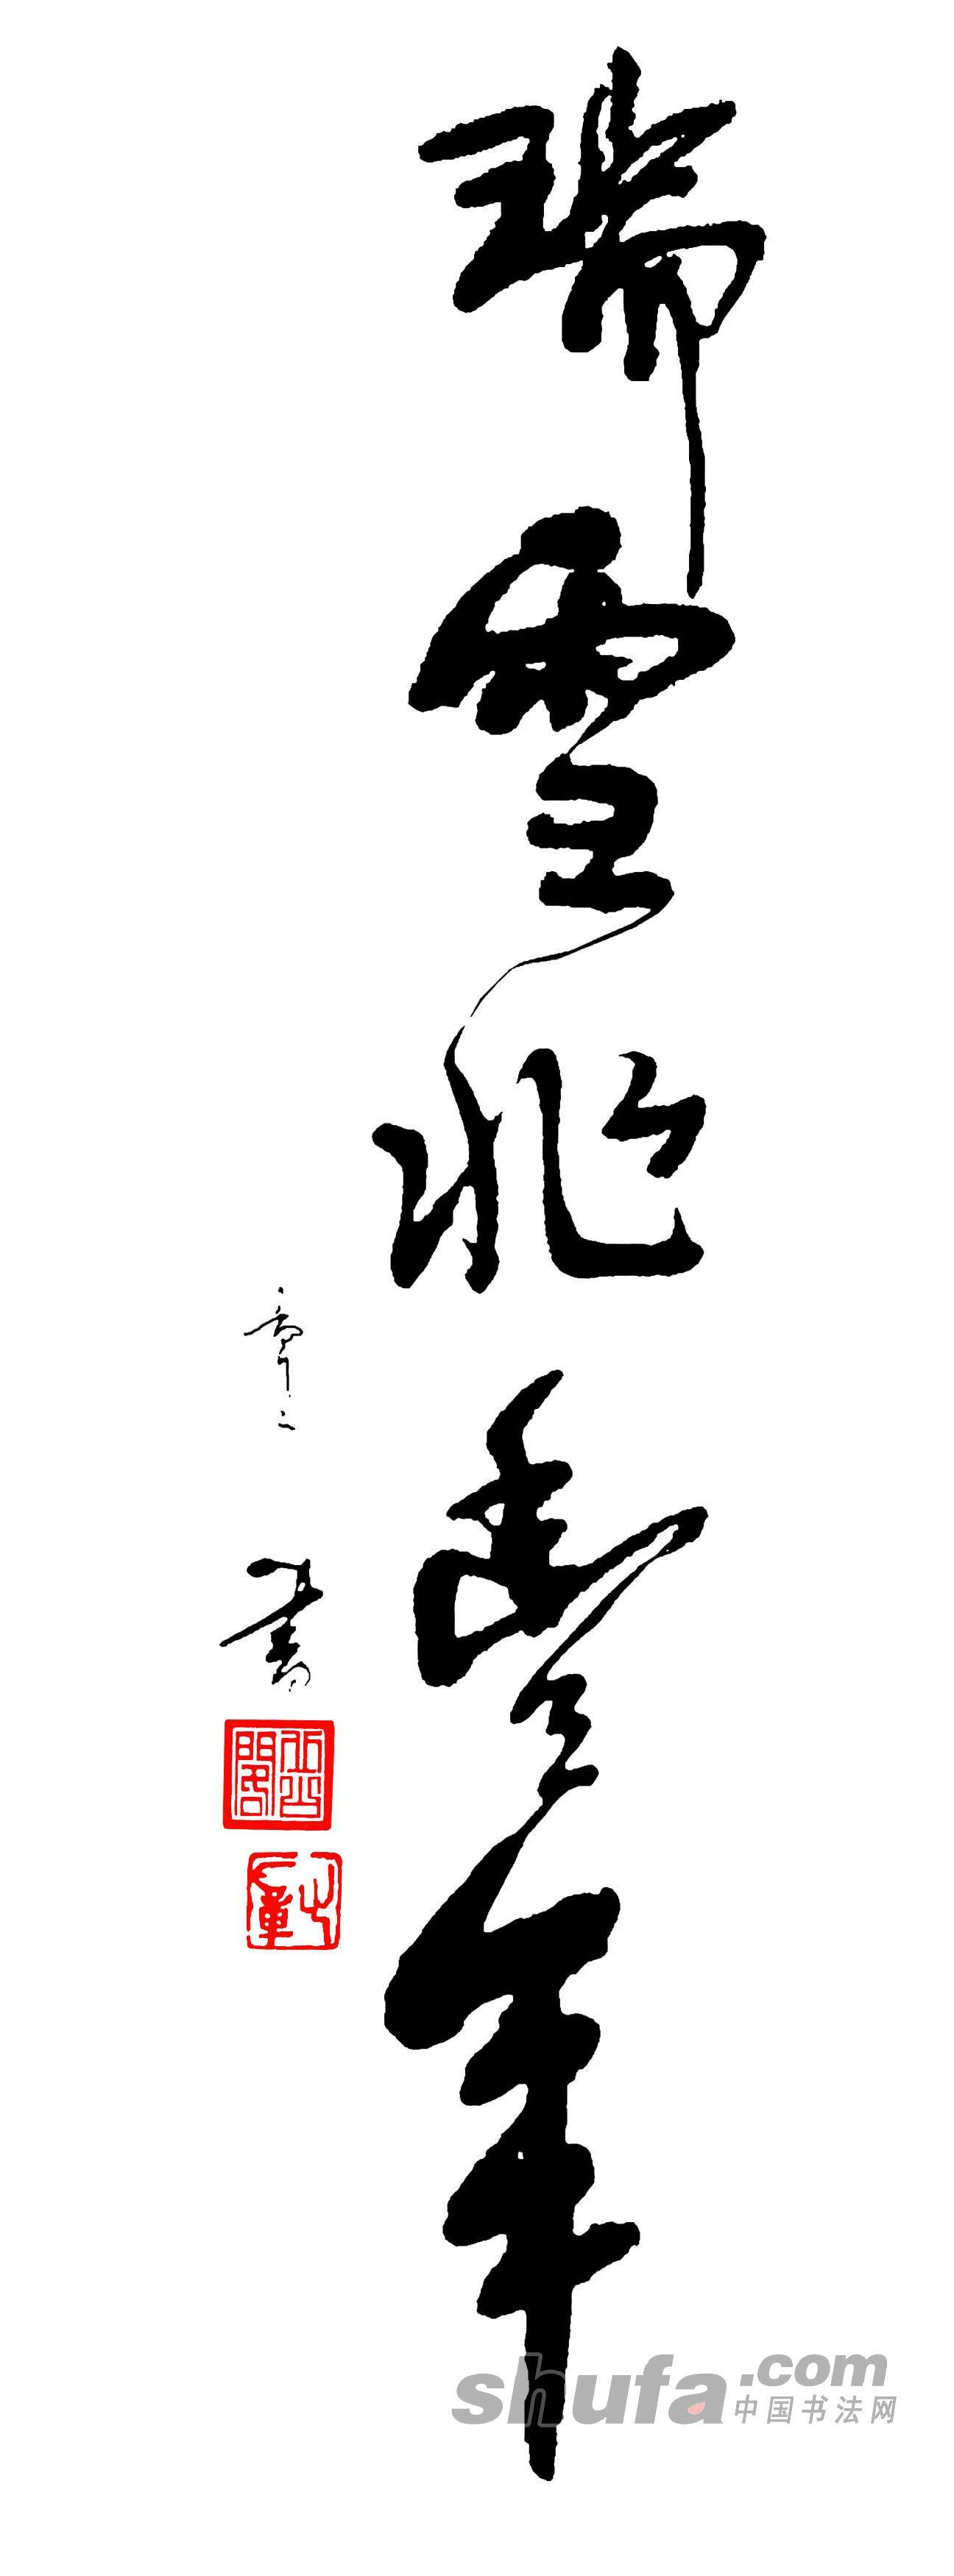 瑞雪兆豐年
章二
書
shufa.com
中国书法网